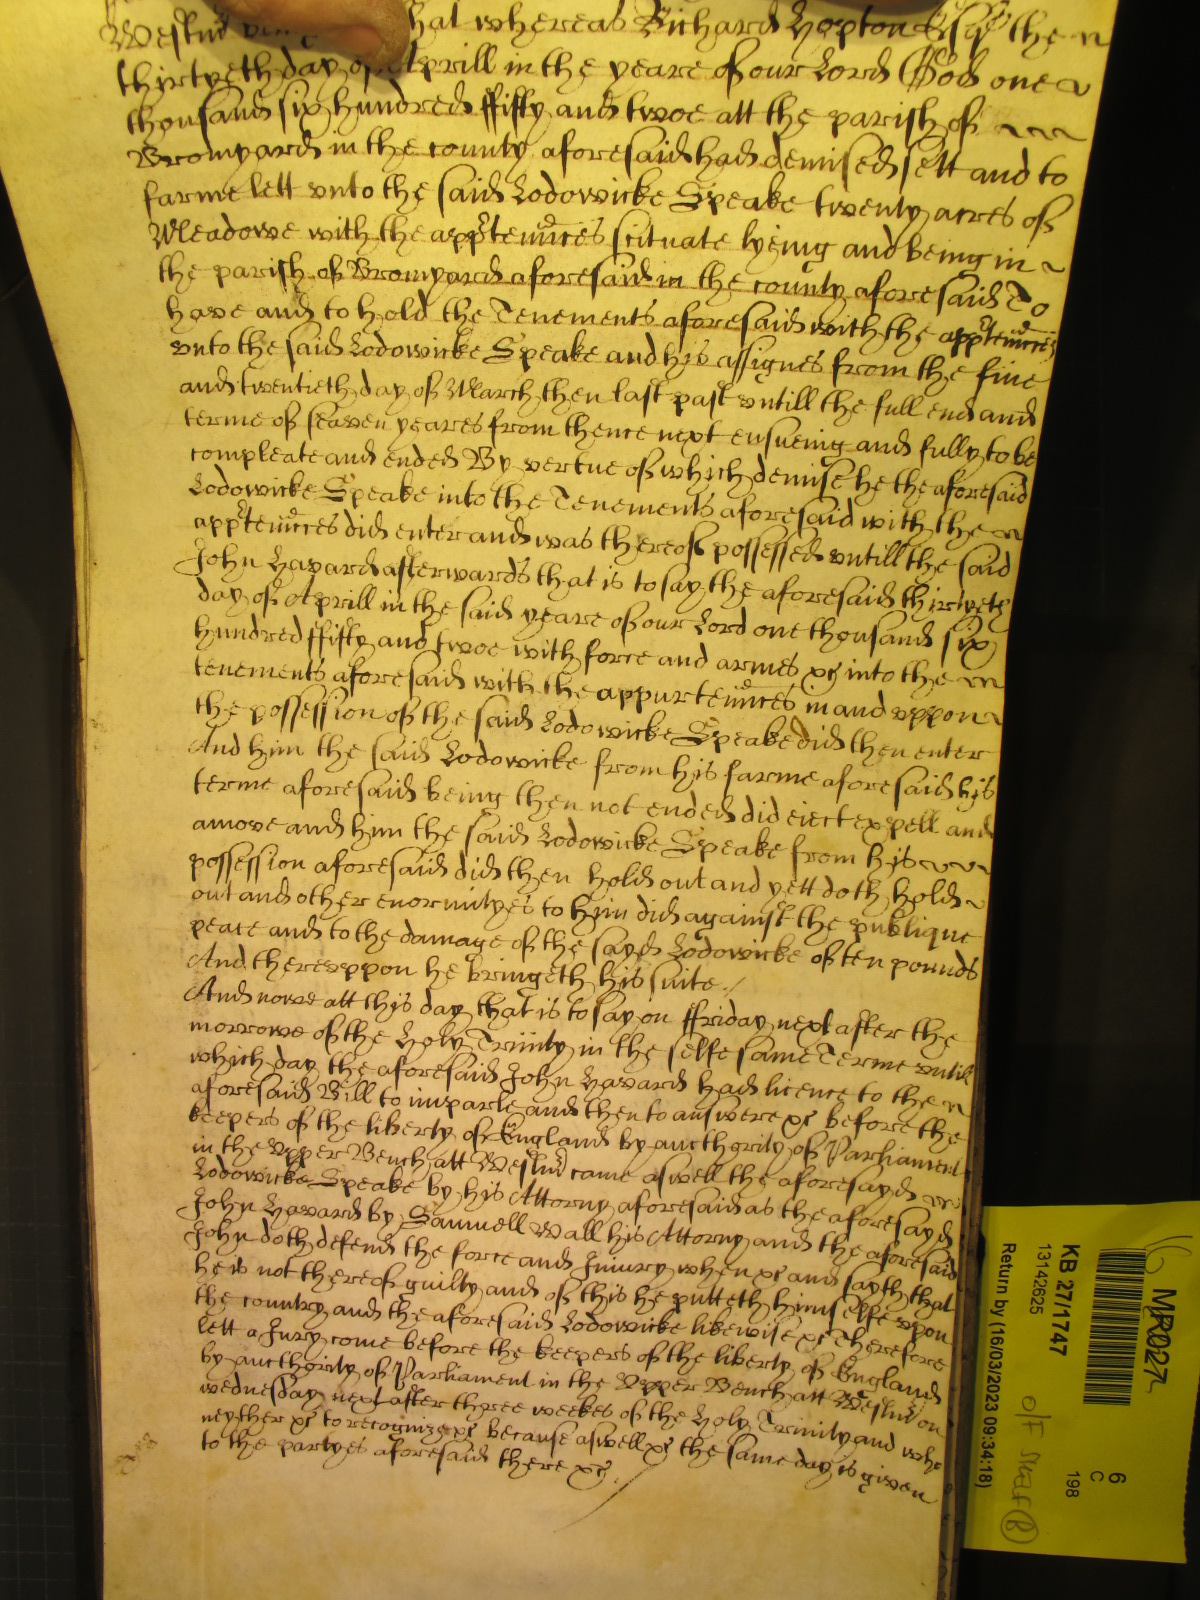 Westm̃ that whereas Richard Hopton Esqr the
thirtyeth day of Aprill in the yeare of our Lord God one
thousand six hundred ffifty and twoe att the parish of
Bromyard in the county aforesaid had demised sett and to
farme lett vnto the said Lodowicke Speake twenty acres of
Meadowe with the apptenñces scituate lyeing and being in
the parish of Bromyard aforesaid in the county aforesaid To
have and to hold the Tenements aforesaid with the apptenñces
vnto the said Lodowicke Speake and his assignes from the five
and twentieth day of March then last past vntill the full end and
terme of seaven yeares from thence next ensueing and fully to be
compleate and ended By vertue of which demise he the aforesaid
Lodowicke Speake into the Tenements aforesaid with the
apptenñces did enter and was thereof possessed vntill the said
John Havard afterwards that is to say the aforesaid thirtyeth
day of Aprill in the said yeare of our Lord one thousand six
hundred ffifty and twoe with force and armes &c into the
tenements aforesaid with the appurtenñces in and vppon
the possession of the said Lodowicke Speake did then enter
And him the said Lodowicke from his farme aforesaid his
terme aforesaid being then not ended did eiect expell and
amove and him the said Lodowicke Speake from his
possession aforesaid did then hold out and yett doth hold
out and other enormityes to him did against the publique
peace and to the damage of the sayd Lodowicke of ten pounds
And therevppon he bringeth his suite./
And nowe att this day that is to say on ffriday next after the
morrowe of the Holy Trinity in the selfe same Terme vntill
which day the aforesaid John Havard had licence to the
aforesaid Bill to imparle and then to answere &c before the
keepers of the liberty of England by aucthority of Parliament
in the Vpper Bench att Westm̃ came aswell the aforesayd
Lodowicke Speake by his Attorny aforesaid as the aforesayd
John Havard by Samuell Wall his Attorny and the aforesaid
John doth defend the force and Iniury when &c and sayth that
he is not thereof guilty and of this he putteth himselfe vpon
the country and the aforesaid Lodowicke likewise &c Therefore
lett a Jury come before the keepers of the liberty of England
by aucthority of Parliament in the Vpper Bench att Westm̃ on
wednesday next after three weekes of the Holy Trinity and who
neyther &c to recognize &c because aswell &c the same day is given
to the partyes aforesaid there &c./
MR027
6
C
198
KB 27/1747
13142625
Return by (16/03/2023 09:34:18)